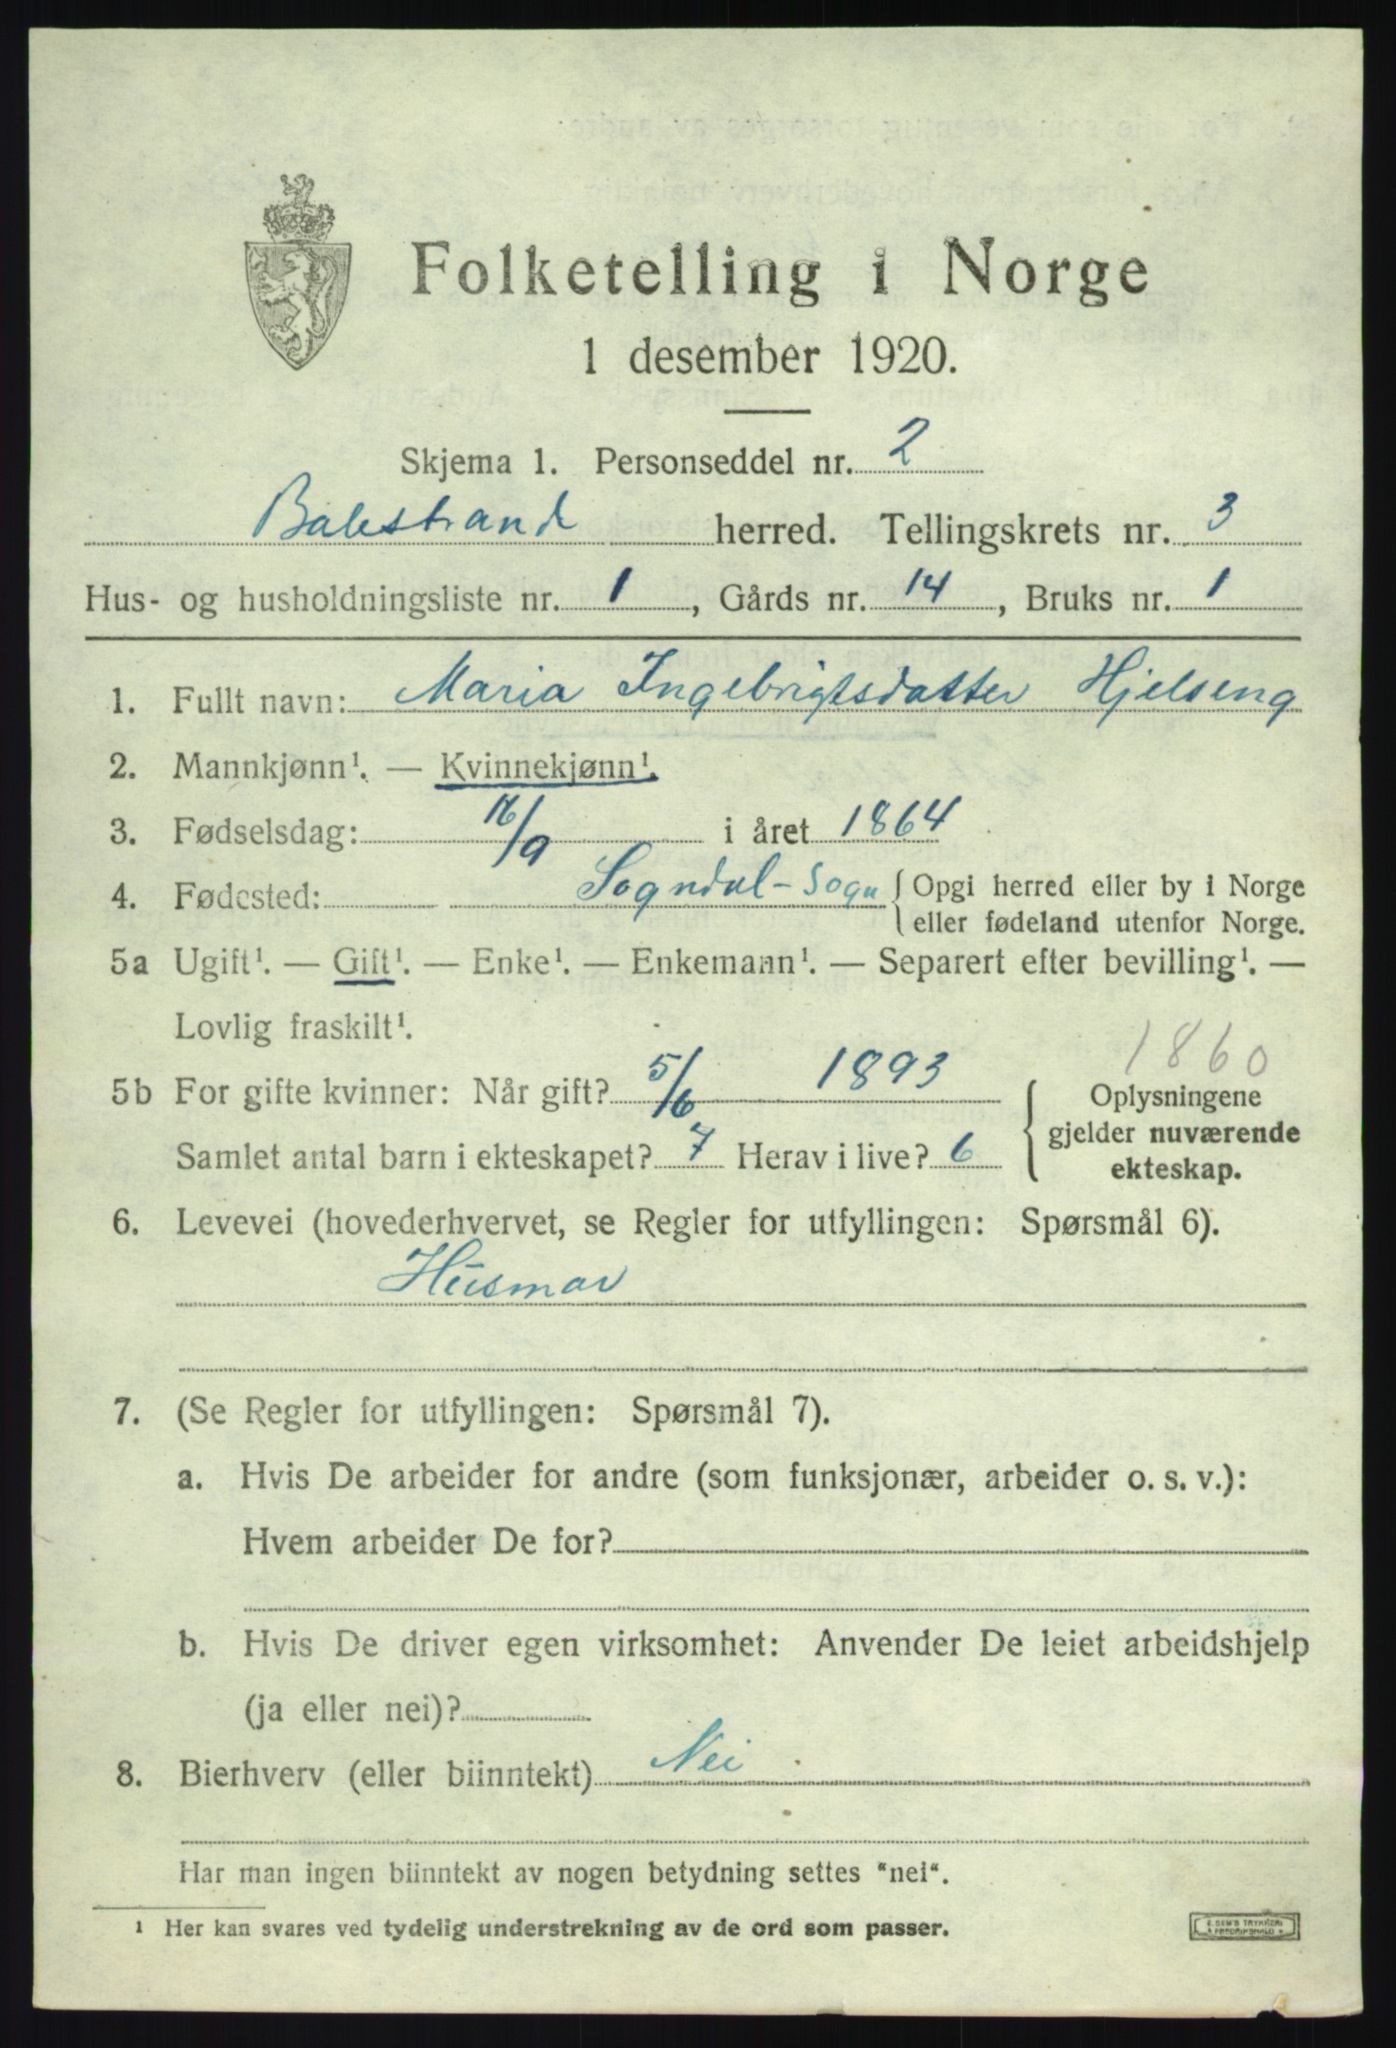 Folketelling i Norge
1 desember 1920.
Skjema 1. Personseddel nr. 2
Balestrand herred. Tellingskrets nr. 3
Hus- og husholdningsliste nr. 1, Gårds nr. 14, Bruks nr. 1
1. Fullt navn: Maria Ingebrigtsdatter Hjelseng
2. Mannkjønn¹. — Kvinnekjønn¹.
3. Fødselsdag: 16/9 i året 1864
4. Fødested: Sogndal - Sogn { Opgi herred eller by i Norge
eller fødeland utenfor Norge.
5a Ugift¹. — Gift¹. — Enke¹. — Enkemann¹. — Separert efter bevilling¹. —
Lovlig fraskilt¹.
1860
5b For gifte kvinner: Når gift? 5/6 1893
Samlet antal barn i ekteskapet? 7 Herav i live? 6
Oplysningene
gjelder nuværende
ekteskap.
6. Levevei (hovederhvervet, se Regler for utfyllingen: Spørsmål 6).
Husmor
7. (Se Regler for utfyllingen: Spørsmål 7).
a. Hvis De arbeider for andre (som funksjonær, arbeider o. s. v.):
Hvem arbeider De for?
b. Hvis De driver egen virksomhet: Anvender De leiet arbeidshjelp
(ja eller nei)?
8. Bierhverv (eller biinntekt) Nei
Har man ingen biinntekt av nogen betydning settes "nei".
¹ Her kan svares ved tydelig understrekning av de ord som passer.
E. SEM'S TRYKKERI
FREDRIKSHALD